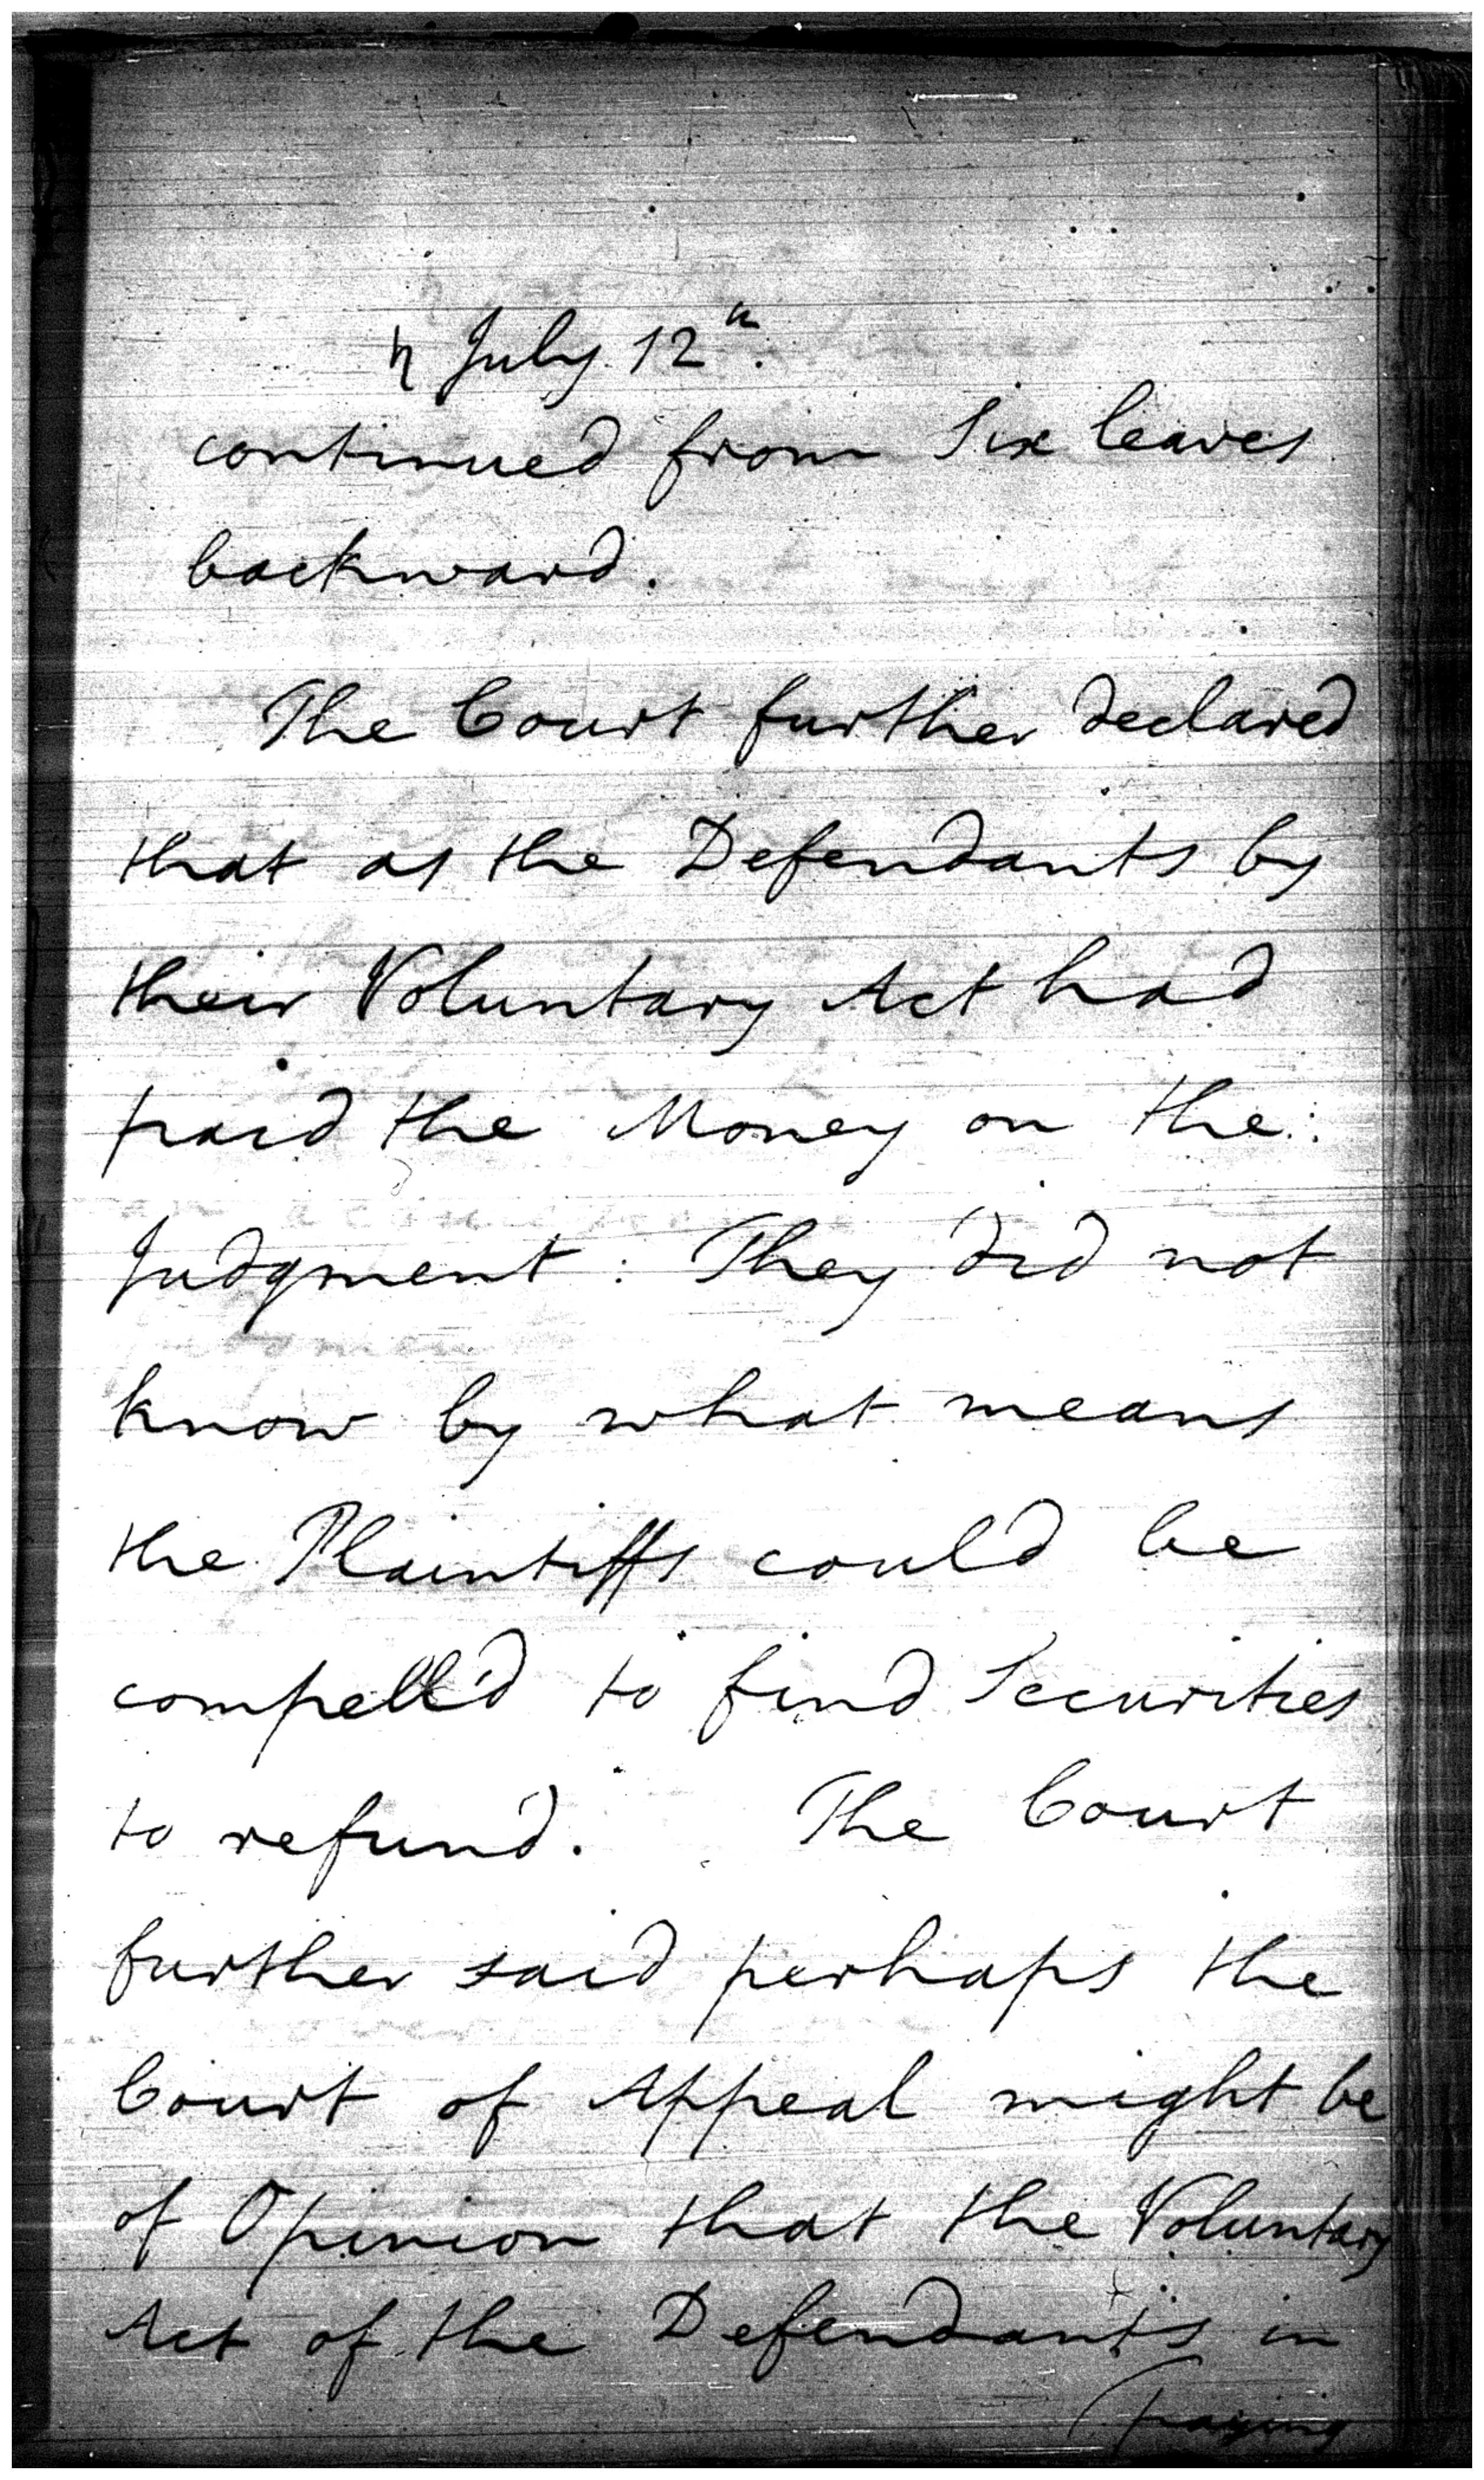 ♄ July 12th.
continued from Six leaves
backward.
The Court further declared
that as the Defendants by
their Voluntary Act had
paid the Money on the
Judgment: They did not
know by what means
the Plaintiffs could be
compell'd to find Securities
to refund. The Court
further said perhaps the
Court of Appeal might be
of Opinion that the Voluntary
Act of the Defendants in
(paying